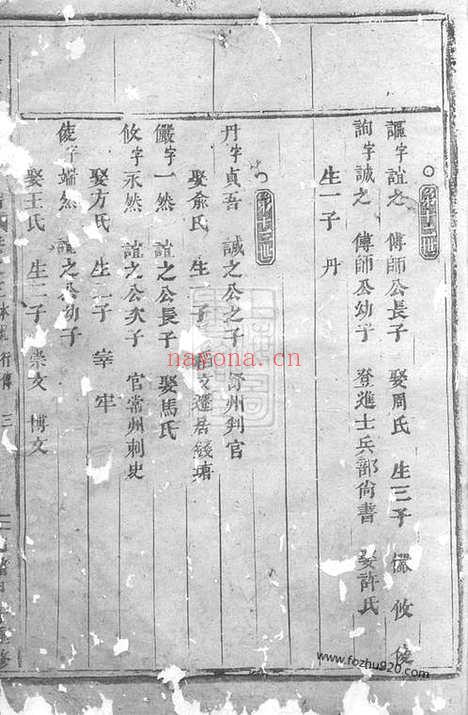 謳字誼之 傳師公長子 娶周氏 生三子 儼 攸 俊
詢字誠之 傳師公幼子 登進士兵部尚書 娶許氏
生一子 丹
丹字貞吾 誠之公之子 州判官
娶俞氏 生 子 遷居錢塘
儼字一然 誼之公長子 娶馬氏
攸字永然 誼之公次子 官常州刺史
娶方氏 生二子 宰 牢
俊字端然 誼之公幼子
娶王氏 生二子 崇文 博文
行傳 三
nayona.cn
www.fozhu920.com